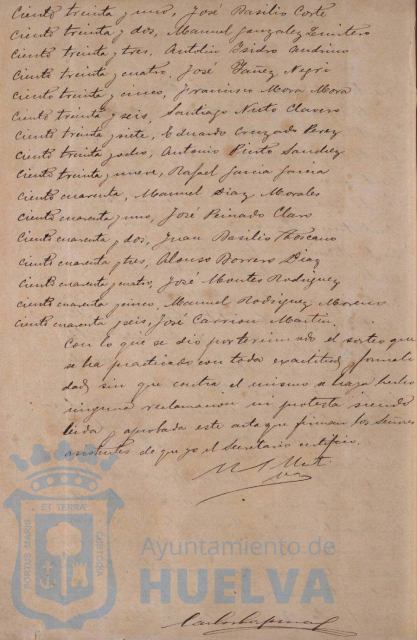 Ciento treinta y uno, José Basilio Corte
Ciento treinta y dos, Manuel Gonzalez Quintero
Ciento treinta y tres, Antolin Isidro
Ciento treinta y cuatro, José Yañez Negri
Ciento treinta y cinco, Francisco Mora Mora
Ciento treinta y seis, Santiago Nieto Clavero
Ciento treinta y siete, Eduardo Cruzado Perez
Ciento treinta y ocho, Antonio Pinto Sanchez
Ciento treinta y nueve, Rafael Garcia Garcia
Ciento cuarenta, Manuel Diaz Morales
Ciento cuarenta y uno, José Peinado Claro
Ciento cuarenta y dos, Juan Basilio Toscano
Ciento cuarenta y tres, Alonso Borrero Diaz
Ciento cuarenta y cuatro, José Montes Rodriguez
Ciento cuarenta y cinco, Manuel Rodriguez Moreno
Ciento cuarenta y seis, José Carrion Martin
Con lo que se dió por terminado el sorteo que
se ha practicado con toda exactitud y formali
dad, sin que contra el mismo se haya hecho
ninguna reclamacion ni protesta siendo
leida y aprobada esta acta que firman los Señores
asistentes de que yo el Secretario certifico.
ET TERRAE
PORTUS MARIS
CUSTODIA
Ayuntamiento de
HUELVA